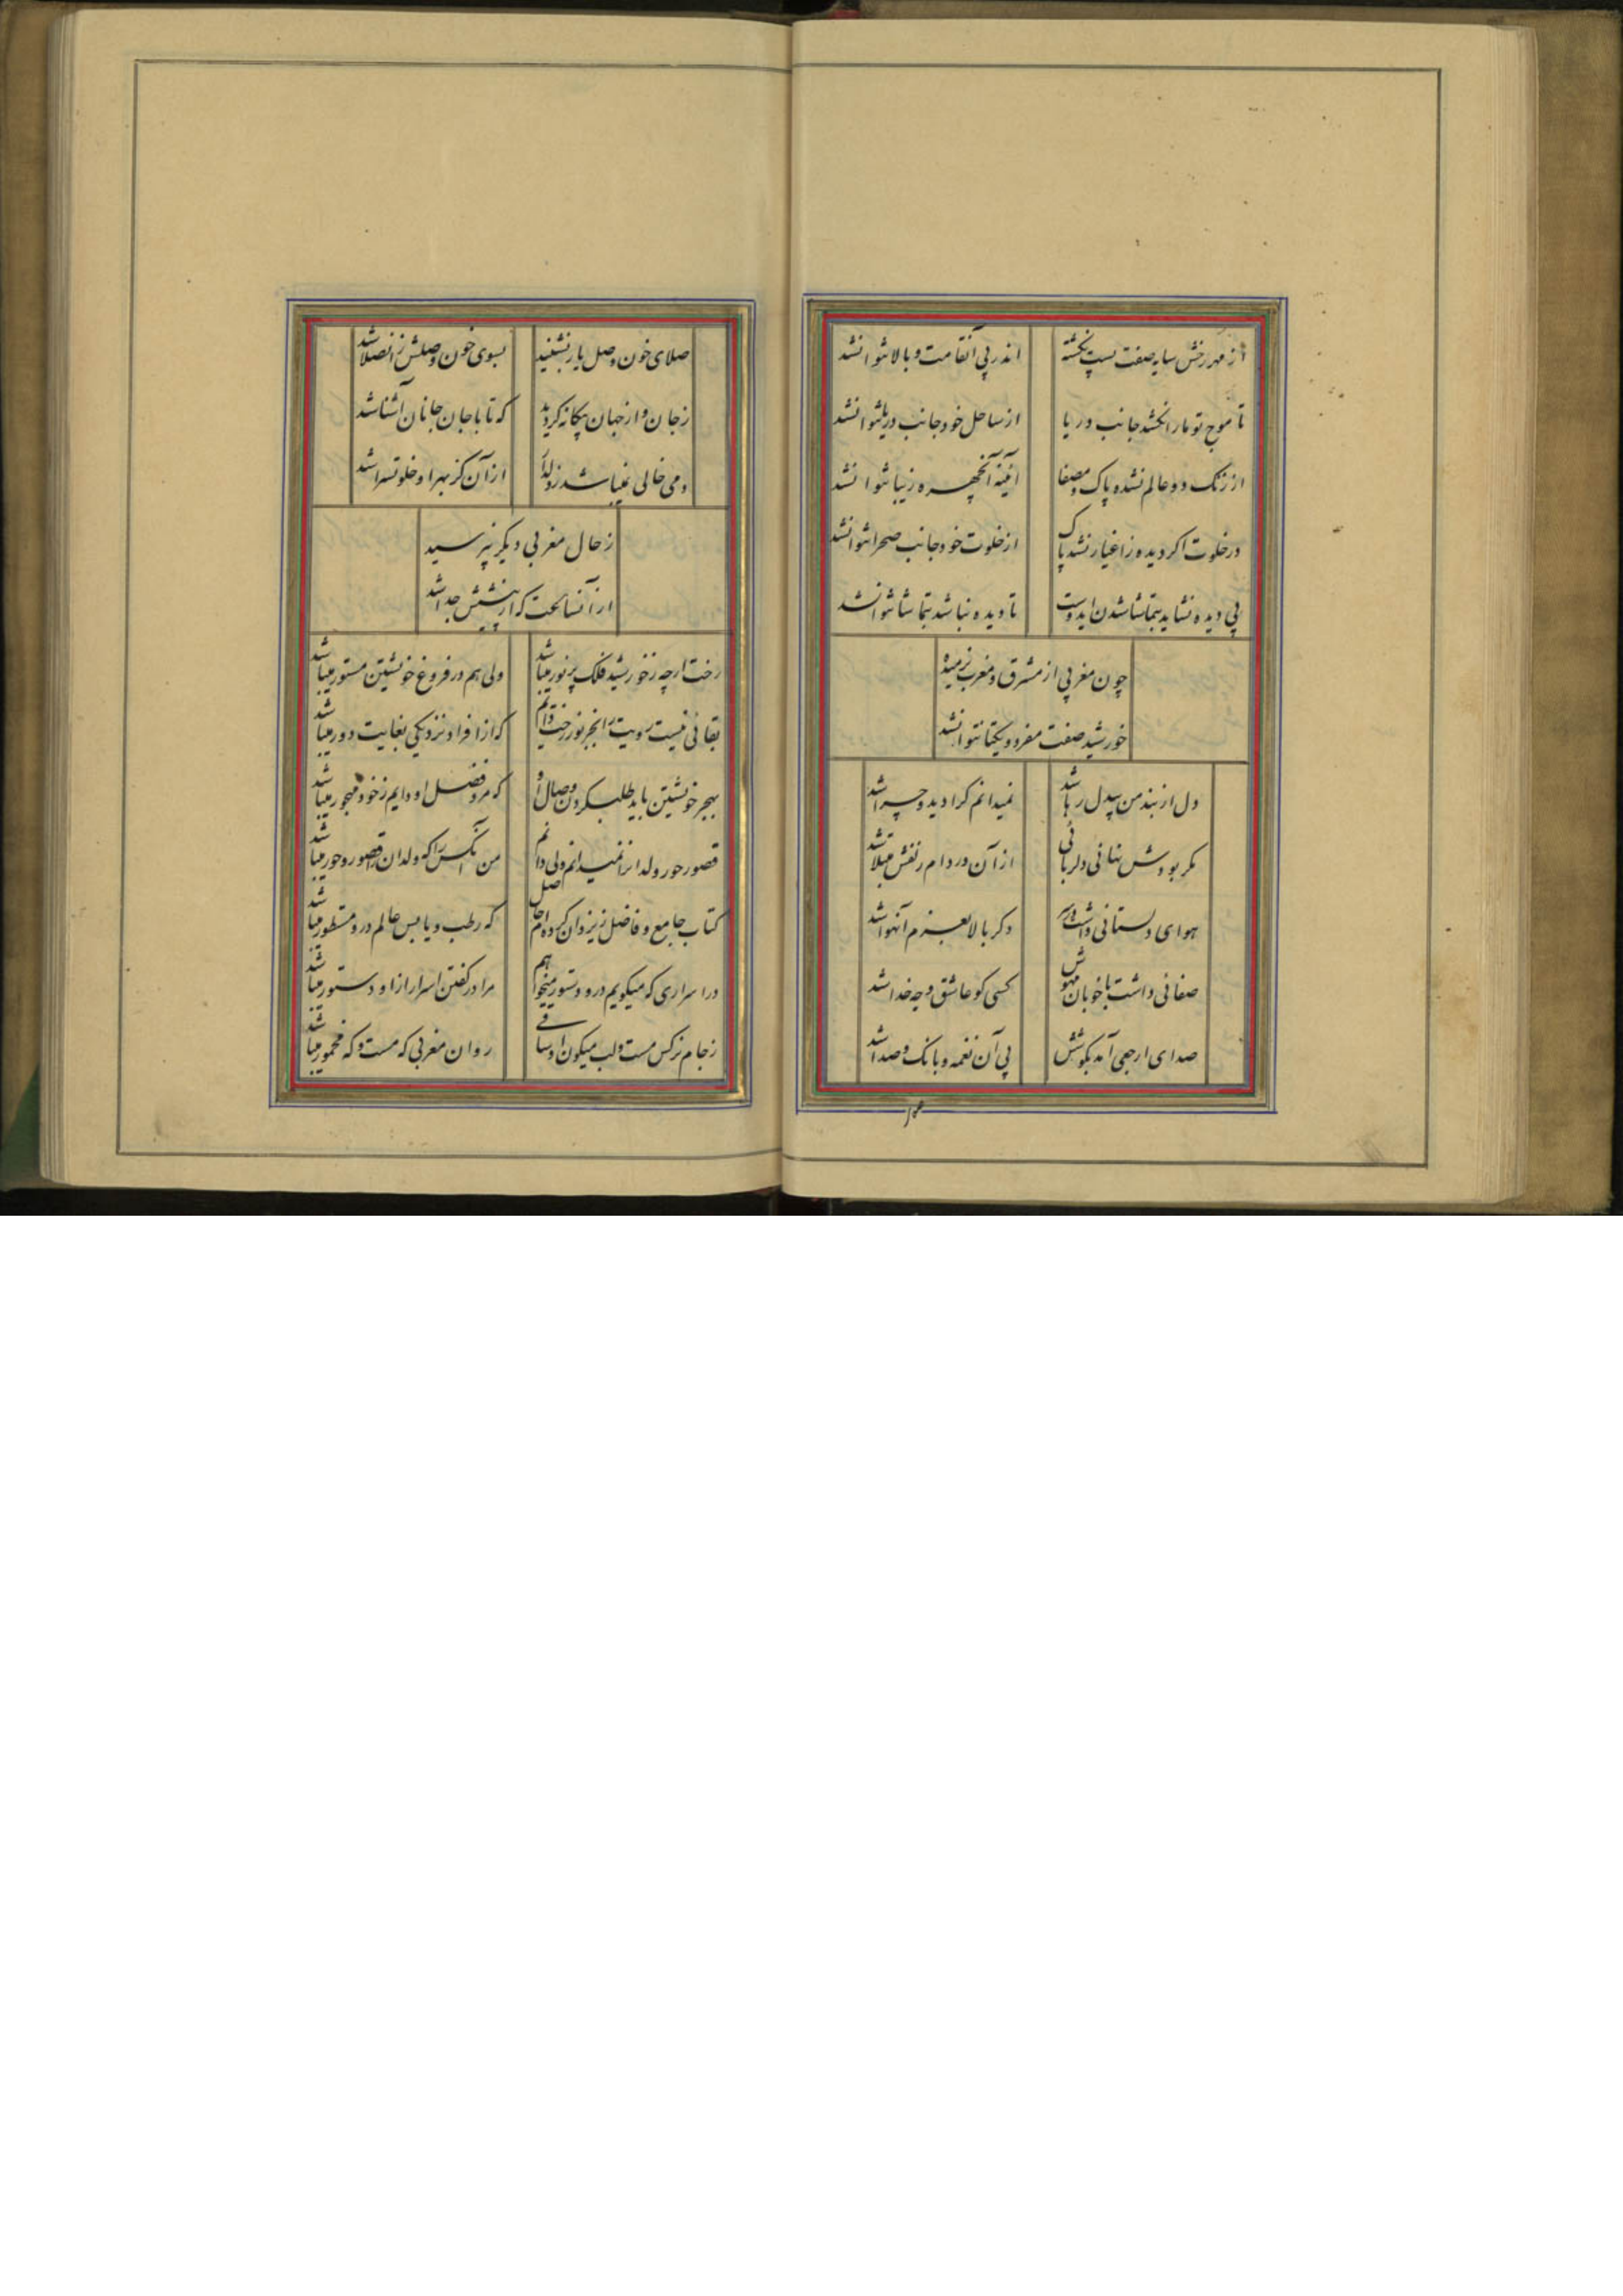 از مهر رخش سایه صفت پست نگشته اندر پی آنقامت و بالا نتوانشد
تا موج تو ما را نکشد جانب دریا از ساحل خود جانب دریا نتوانشد
از زنک دو عالم نشده پاک و مصفا آئینه آنچهره زیبا نتوانشد
در خلوت اکر دیده ز اغیار نشد پاک از خلوت خود جانب صحرا نتوانشد
بی دیده نشاید بتماشا شدن ایدوست تا دیده نباشد بتماشا نتوانشد
چون مغربی از مشرق و مغرب نرمیده
خورشید صفت مفرد و یکتا نتوانشد
دل از بند من بیدل رها شد نمیدانم کرا دید و چرا شد
مکر بودش نهانی دلربائی از آن در دام زلفش مبتلا شد
هوای دلستانی داشت در سر دکر بالا بعزم آنهوا شد
صفائی داشت با خوبان مهوش کسی کو عاشق وجه خدا شد
صدای ارجعی آمد بکوشش پی آن نغمه و بانک و صدا شد
صلای خون وصل یار بشنید بسوی خون وصلش زانصلا شد
ز جان و از جهان بیکانه کردید که تا با جان جانان آشنا شد
دمی خالی نمیباشد ز دلدار از آن کز بهر او خلوتسرا شد
ز حال مغربی دیکر نپرسید
از آنساعت که از پیشش جدا شد
رخت ارچه ز خورشید فلک پر نور میباشد ولی هم در فروغ خویشتن مستور میباشد
نقابی نیست رویت را بجز نور رخت دایم که از افراد نزدیکی بغایت دور میباشد
بهجر خویشتن باید طلب کردن وصال او که مرد وصل او دایم ز خود مهجور میباشد
قصور حور و ولدانرا نمیدانم ولی دانم من آنکس را که ولدان و قصور و حور میباشد
کتاب جامع و فاضل ز یزدان کرده ام حاصل که رطب و یابس عالم درو مسطور میباشد
در اسراری که میکویم درو دستور میخواهم مرا در کفتن اسرار از او دستور میباشد
ز جام نرکس مست و لب میکون او ساقی روان مغربی که مست و که مخمور میباشد